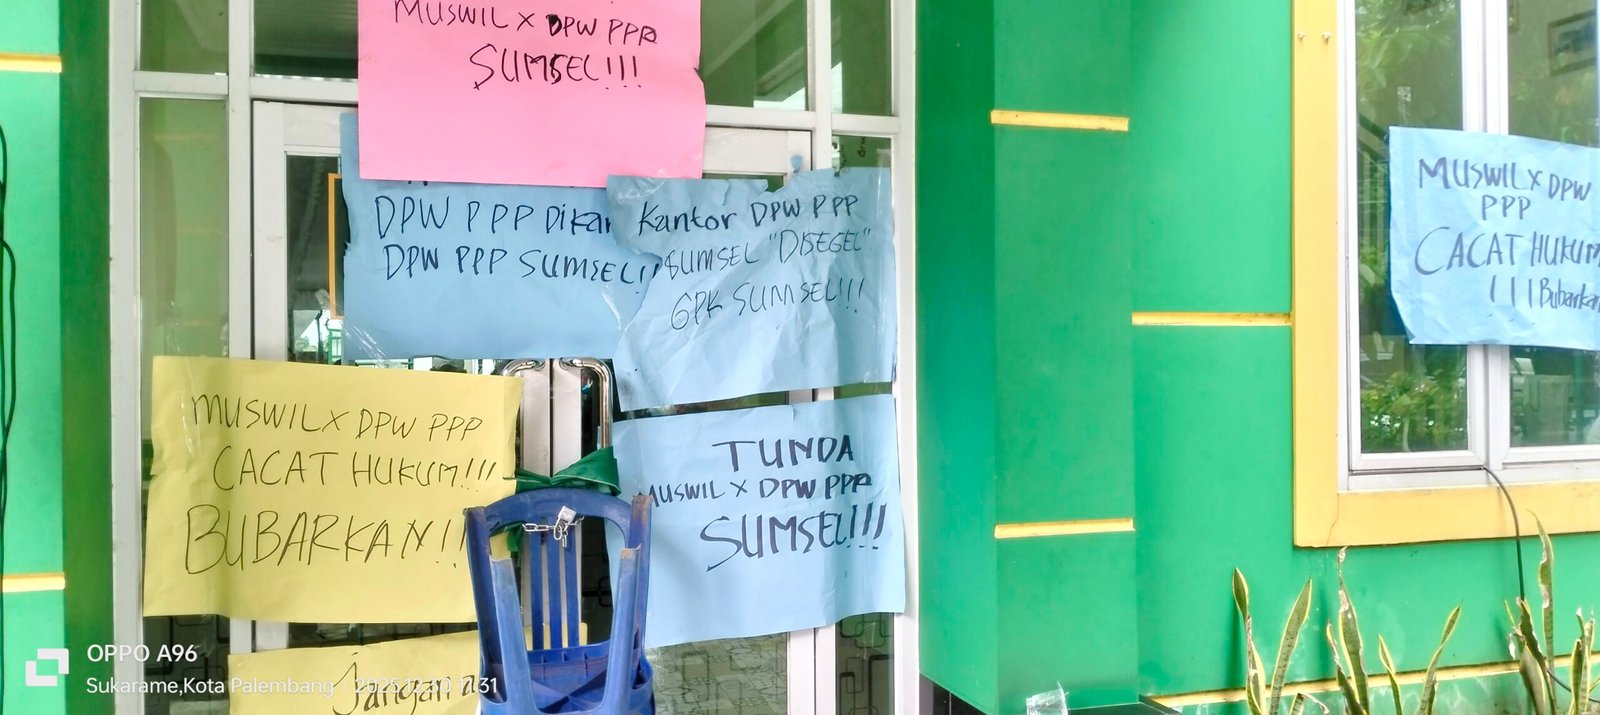 MUSWIL X DPW PPP
SUMSEL!!!
DPW PPP Dikan
DPW PPP SUMSEL!!
Kantor DPW PPP
SUMSEL "DISEGEL"
GPK SUMSEL!!!
MUSWIL X DPW PPP
CACAT HUKUM!!!
BUBARKAN!!
TUNDA
MUSWIL X DPW PPP
SUMSEL!!!
Jangan
MUSWIL X DPW
PPP
CACAT HUKUM
!!! Bubarkan
OPPO A96
Sukarame,Kota Palembang